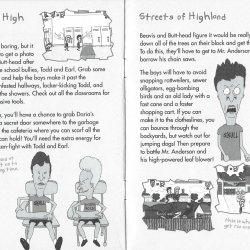 High
boring, but it
get a photo
Butt-head after
school bullies, Todd and Earl. Grab some
and help the boys make it past the
infested hallways, locker-kicking Todd, and
the showers. Check out all the classrooms for
sive tools.
you'll have a chance to grab Daria's
secret door somewhere to the garbage
the cafeteria where you can scarf all the
can hold! You'll need the extra energy for
fight with Todd and Earl.
Streets of Highland
Beavis and Butt-head figure it would be really
down all of the trees on their block and get th
To do this, they'll have to get to Mr. Anderson
borrow his chain saws.
The boys will have to avoid
snapping rottweilers, sewer
alligators, egg-bombing
birds and an old lady with a
fast cane and a faster
shopping cart. If you can
make it to the clotheslines, you
can bounce through the
backyards, but watch out for
jumping dogs! Then prepare
to battle Mr. Anderson and
his high-powered leaf blower!
SKULL